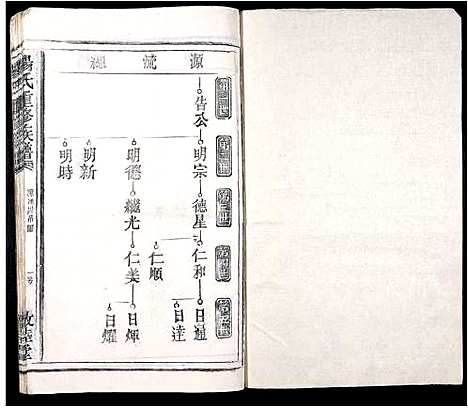 源流
告公 明宗 德星 仁和 日通
仁順 日達
明德 繼光 仁美 日煇
日耀
明新
明時
氏重修族譜
堂